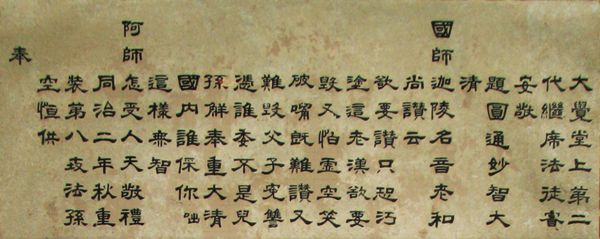 大覺堂上第二
代繼席法徒實
安敬
題圓通妙智大
清
國師迦陵名音老和
尚讚云
欲要讚只恐污
塗這老漢欲要
毀又怕虛空笑
破嘴旣難讚又
難毀父子冤讐
憑誰委不是兒
孫解奉重大清
國內誰保你咄
這樣無智
阿師怎受人天敬禮
同治二年秋重
裝第八法孫
空恒供
奉